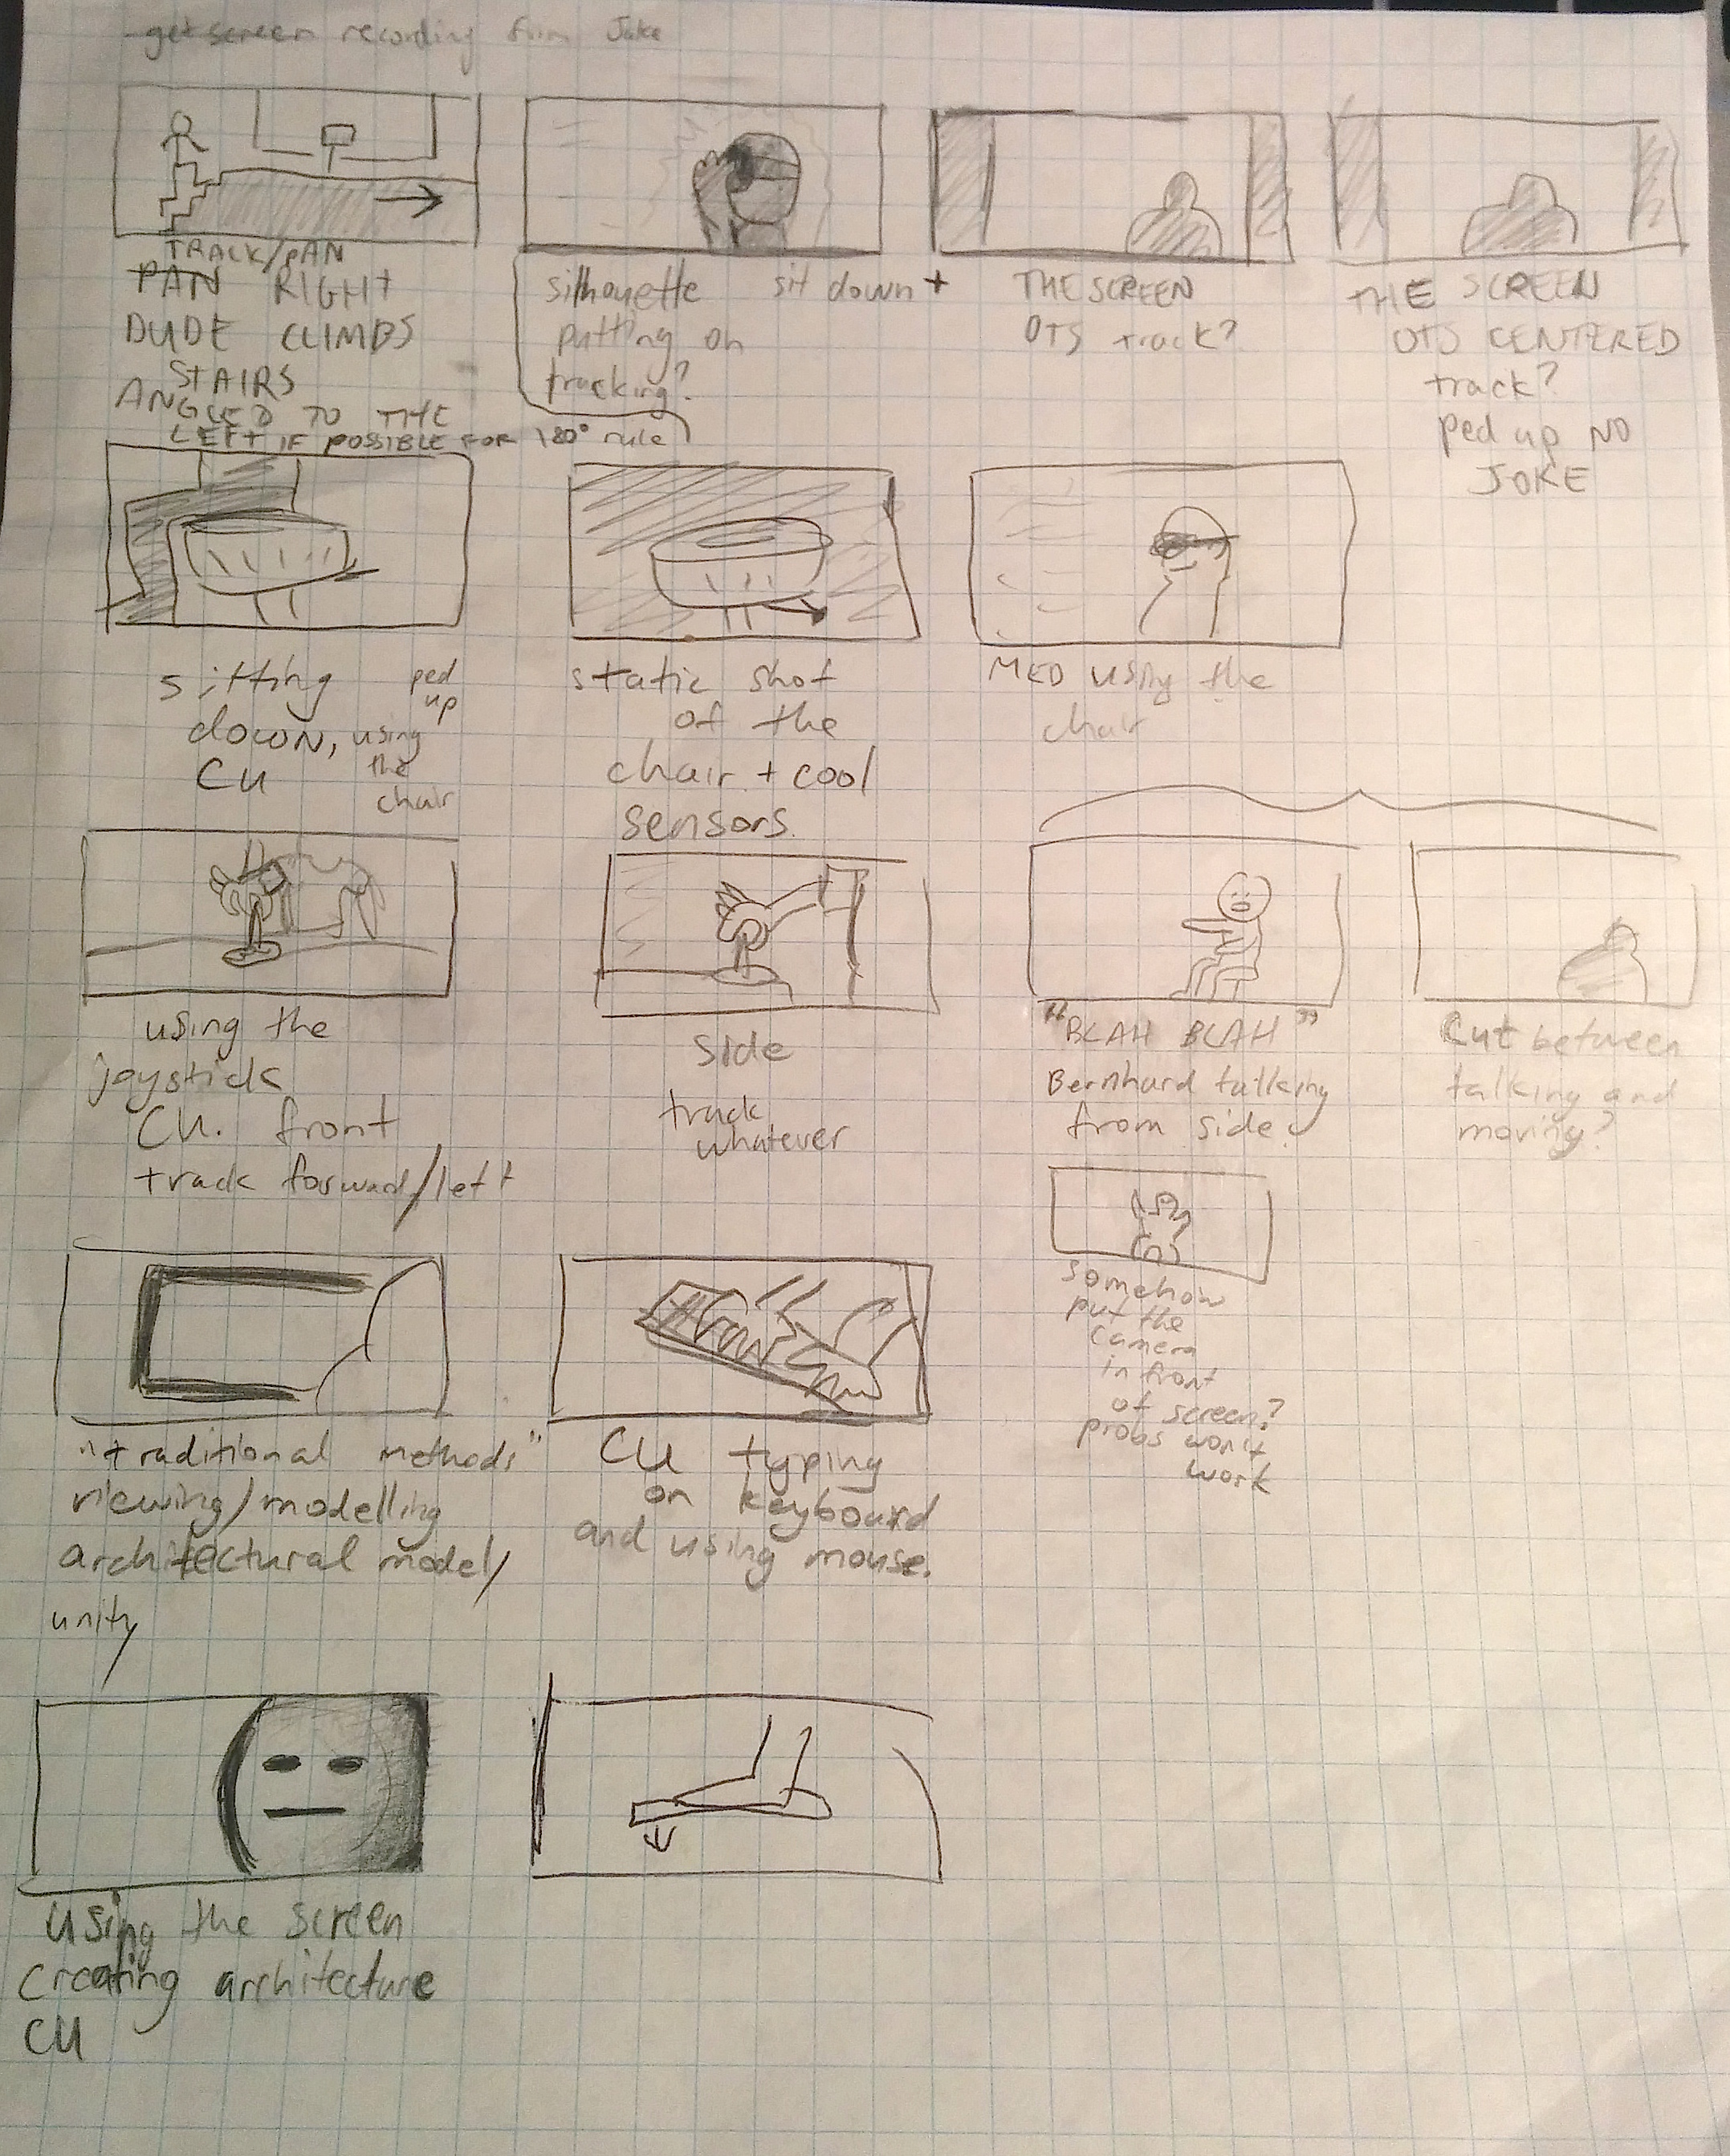 get screen recording from Jake
TRACK/PAN
PAN RIGHT
DUDE CLIMBS
STAIRS
ANGLED TO THE
LEFT IF POSSIBLE FOR 180° rule
silhouette sit down +
putting on
tracking?
THE SCREEN
OTS track?
THE SCREEN
OTS CENTERED
track?
ped up NO
JOKE
sitting
down, using
CU
ped
up
the
chair
static shot
of the
chair + cool
sensors.
MED using the
chair
using the
joystick
CU. front
track forward/left
side
track
whatever
"BLAH BLAH"
Bernhard talking
from side.
Cut between
talking and
moving?
somehow
put the
camera
in front
of screen?
probs won't
work
"traditional methods"
viewing/modelling
architectural model/
unity
CU typing
on keyboard
and using mouse.
using the screen
creating architecture
CU